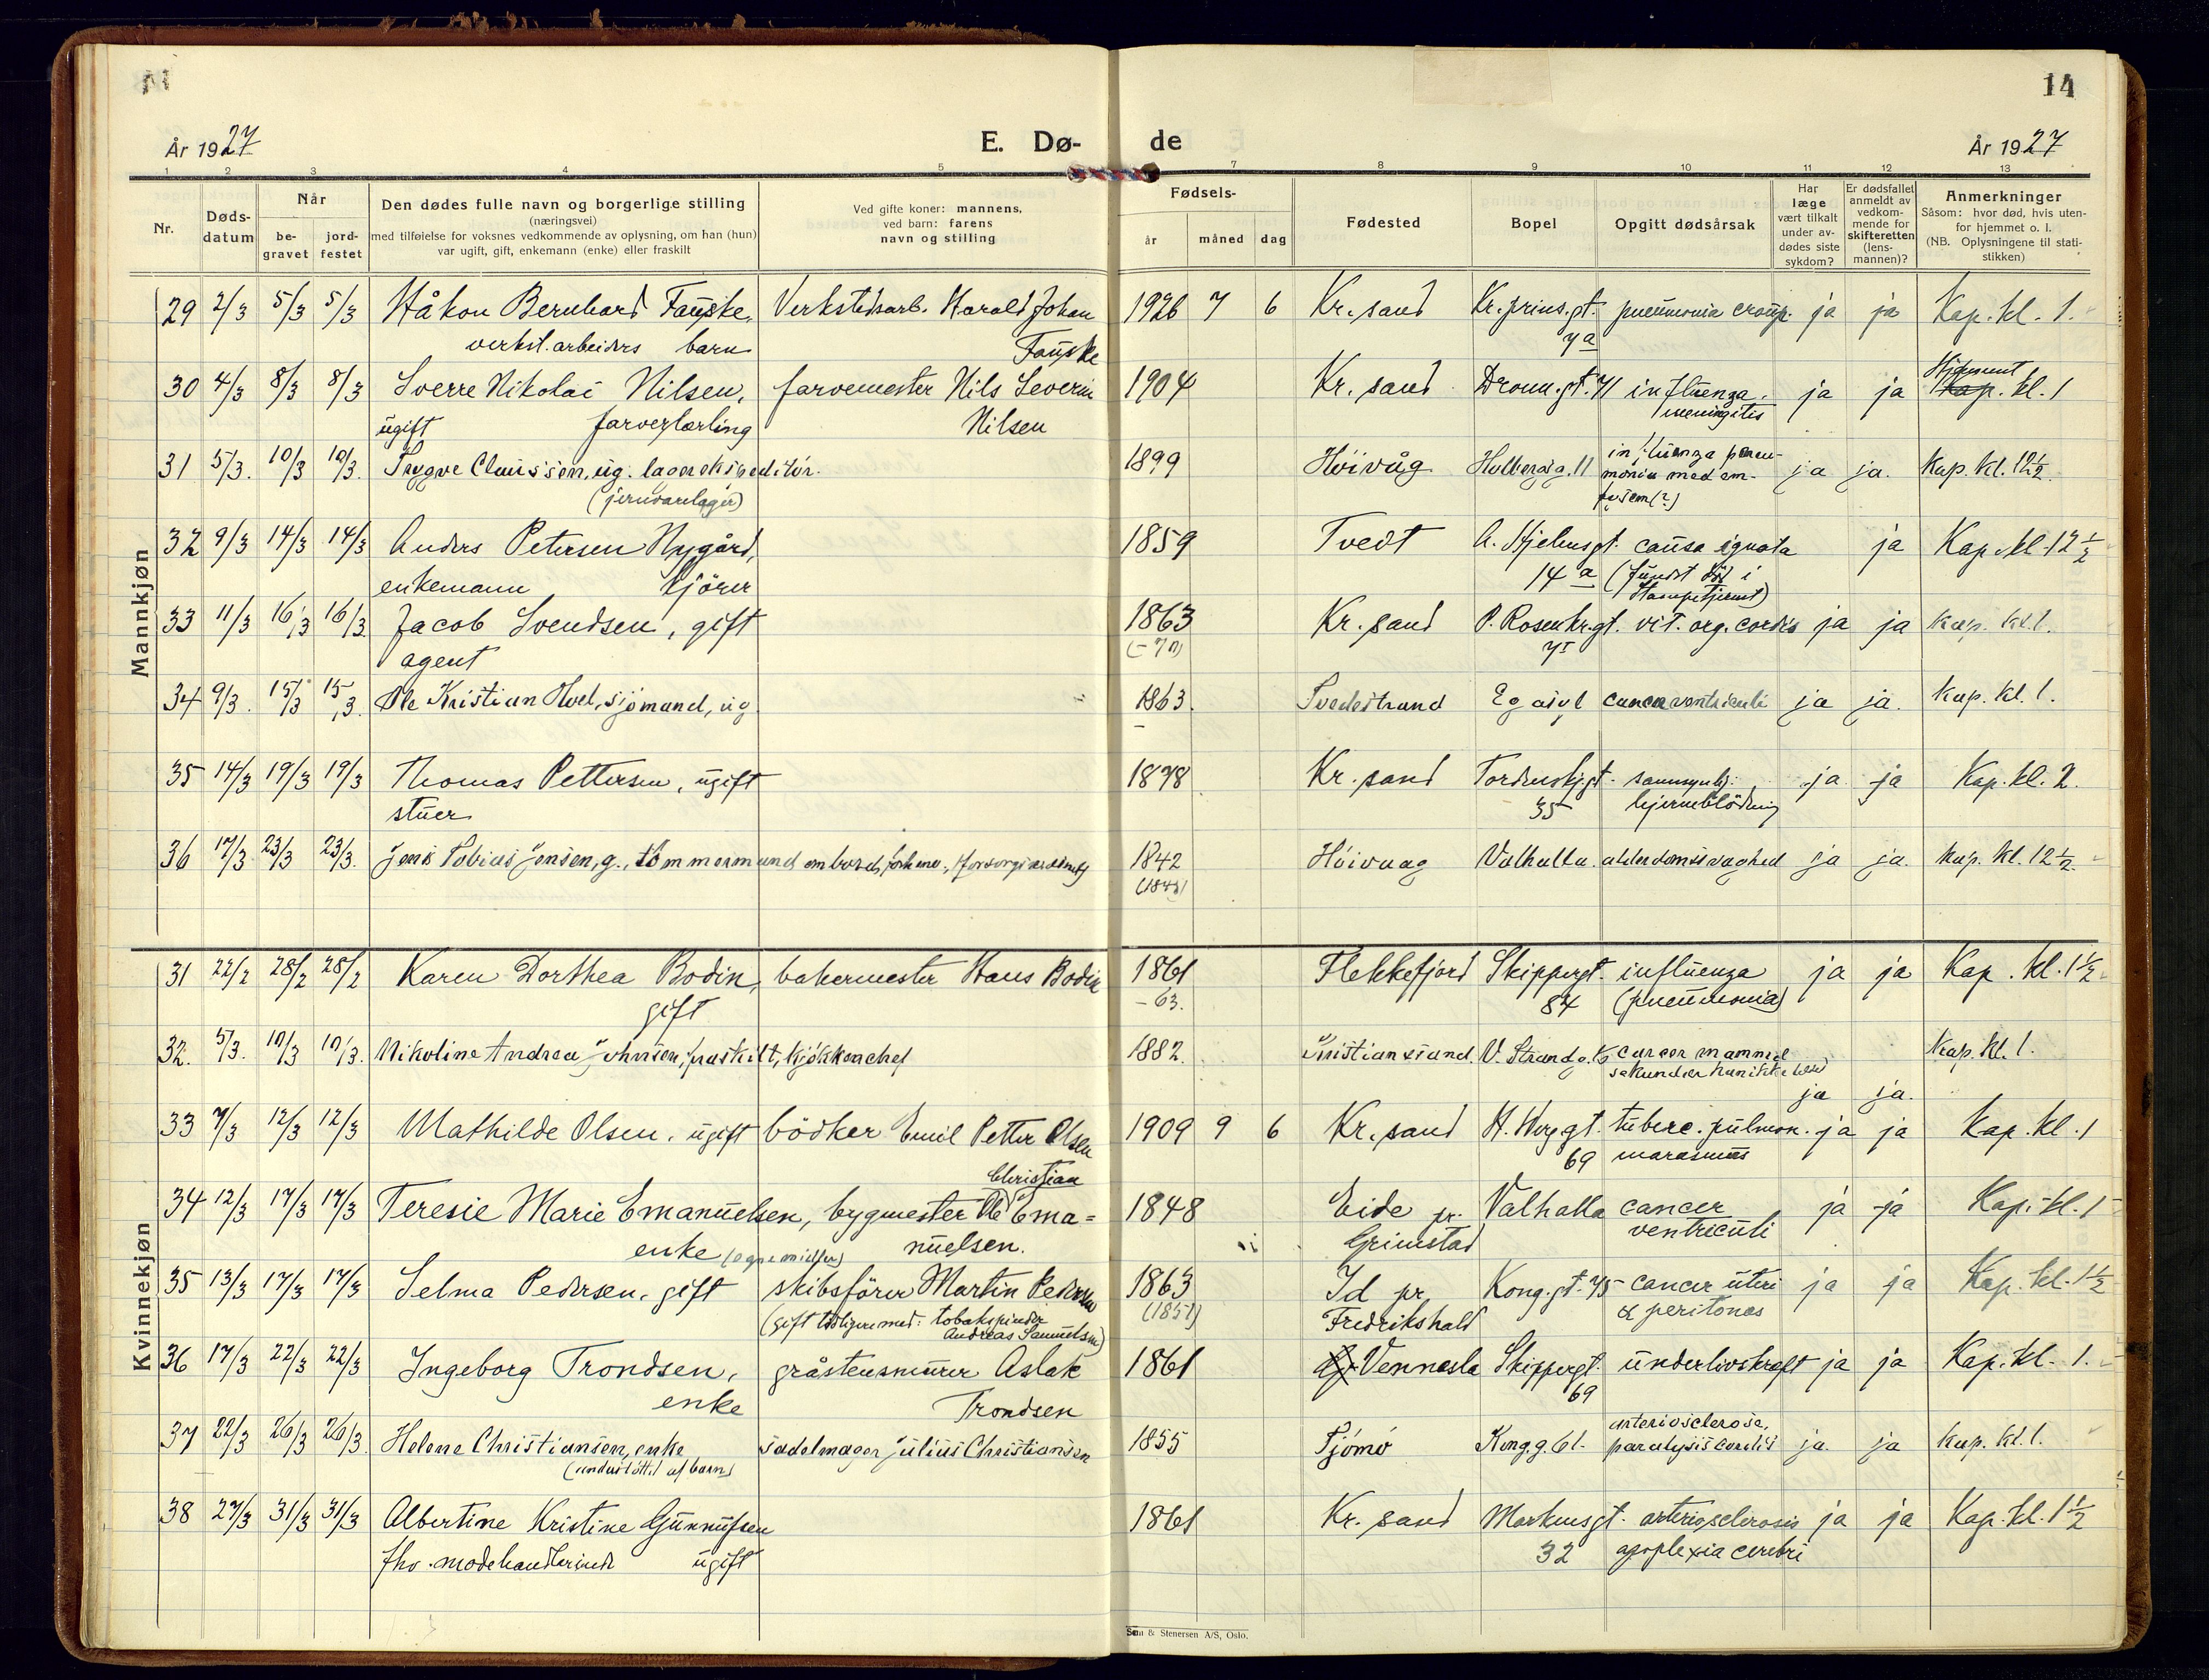 14
År 1927 E. Dø- de År 1927
1 2 3 4 5 7 8 9 10 11 12 13
Nr.
Døds-
datum
Når
be-
gravet
jord-
festet
Den dødes fulle navn og borgerlige stilling
(næringsvei)
med tilføielse for voksnes vedkommende av oplysning, om han (hun)
var ugift, gift, enkemann (enke) eller fraskilt
Ved gifte koner: mannens,
ved barn: farens
navn og stilling
Fødsels-
år måned dag
Fødested
Bopel
Opgitt dødsårsak
Har
læge
vært tilkalt
under av-
dødes siste
sykdom?
Er dødsfallet
anmeldt av
vedkom-
mende for
skifteretten
(lens-
mannen)?
Anmerkninger
Såsom: hvor død, hvis uten-
for hjemmet o. l.
(NB. Oplysningene til stati-
stikken)
Mannkjøn
29 2/3 5/3 5/3 Håkon Bernhard Fauske, Verkstedsarb. Harald Johan 1926 7 6 Kr.sand Kr.prins.gt. pneumonia croup. ja ja Kap. kl. 1.
verkst.arbeiders barn Fauske 7a
30 4/3 8/3 8/3 Sverre Nikolai Nilsen, farvemester Nils Severin 1904 Kr.sand Dronn.gt.71 influenza. ja ja Hjemmet kap. kl. 1
ugift farverlærling Nilsen meningitis
31 5/3. 10/3 10/3. Trygve Claussen, ug. lagerekspeditør. 1899 Höivåg Holbergsg.11 influenza pneu- ja ja. Kap. kl. 12½.
(jernvarelager) monia med em-
fysem(?)
32 9/3 14/3 14/3 Anders Petersen Nygård, 1859 Tvedt A. Hjelmsgt. causa ignota ja Kap. kl. 12½
enkemann kjörer 14a (fundet död i
Stampetjernet)
33 11/3 16/3 16/3. Jacob Svendsen, gift 1863 Kr.sand P. Rosenkr.gt. vit. org. cordis ja ja Kap. kl. 1.
agent
34 9/3. 15/3 15/3. Ole Kristian Hoel, sjömand, ug 1863. Tvedestrand Eg asyl cancer ventriculi ja ja. Kap. kl. 1.
35 14/3 19/3 19/3 Thomas Pettersen, ugift 1878 Kr.sand Tordenskj.gt. sannsynlig ja ja Kap. kl. 2.
stuer 35 hjerneblödning
36 17/3 23/3 23/3. Jens Tobias Jensen, g., tömmermand ombord, 1842 Höivaag Valhalla. alderdomssvaghed ja ja. Kap. kl. 12½.
Kvinnekjøn
31 22/2 28/2 28/2 Karen Dorthea Bodin, bakermester Hans Bodin 1861 Flekkefjord Skippergt. influenza ja ja Kap. kl. 1½
gift -63. 84 (pneumonia)
32. 5/3. 10/3 10/3. Nikoline Andrea Johnsen, fraskilt, kjökkenchef 1882. Kristianssund. V. Strandg. cancer mammæ Kap. kl. 1.
ja ja.
33 7/3 12/3 12/3 Mathilde Olsen, ugift bödker Emil Petter Olsen 1909 9 6 Kr.sand H. Werg.gt. tuberc. pulmon. ja ja Kap. kl. 1
69 marasmus
Christian
34 12/3 17/3 17/3 Teresie Marie Emanuelsen, bygmester Ole Ema= 1848 Eide pr. Valhalla cancer ja ja Kap. kl. 1
enke (egne midler) nuelsen. Grimstad ventriculi
35 13/3 17/3 17/3 Selma Pedersen, gift skibsförer Martin Pedersen 1863 Id pr. Kong.gt. 75 cancer uteri ja ja Kap. kl. 1½
(gift tidligere med: tobakspinder (1851) Fredrikshald & peritones
Andreas Samuelsen)
36 17/3 22/3 22/3 Ingeborg Trondsen, gråstensmurer Aslak 1861 Vennesla Skippergt. underlivskreft ja ja Kap. kl. 1.
enke Trondsen 69
37 22/3 26/3 26/3. Helene Christiansen, enke sadelmager Julius Christiansen 1855 Tjömö Kong.g. 61. arteriosclerose, ja. ja Kap. kl. 1.
(understöttet af barn) paralysis cordis
38 27/3 31/3 31/3 Albertine Kristine Gunnufsen 1861 Kr.sand Markensgt. arteriosclerosis ja ja Kap. kl. 1½
fhv. modehandlerinde ugift 32 apoplexia cerebri
& Stenersen A/S, Oslo.